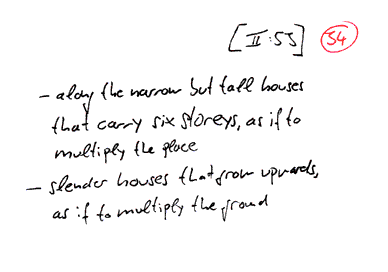 [II:53] 54
– along the narrow but tall houses
that carry six storeys, as if to
multiply the place
– slender houses that grow upwards,
as if to multiply the ground